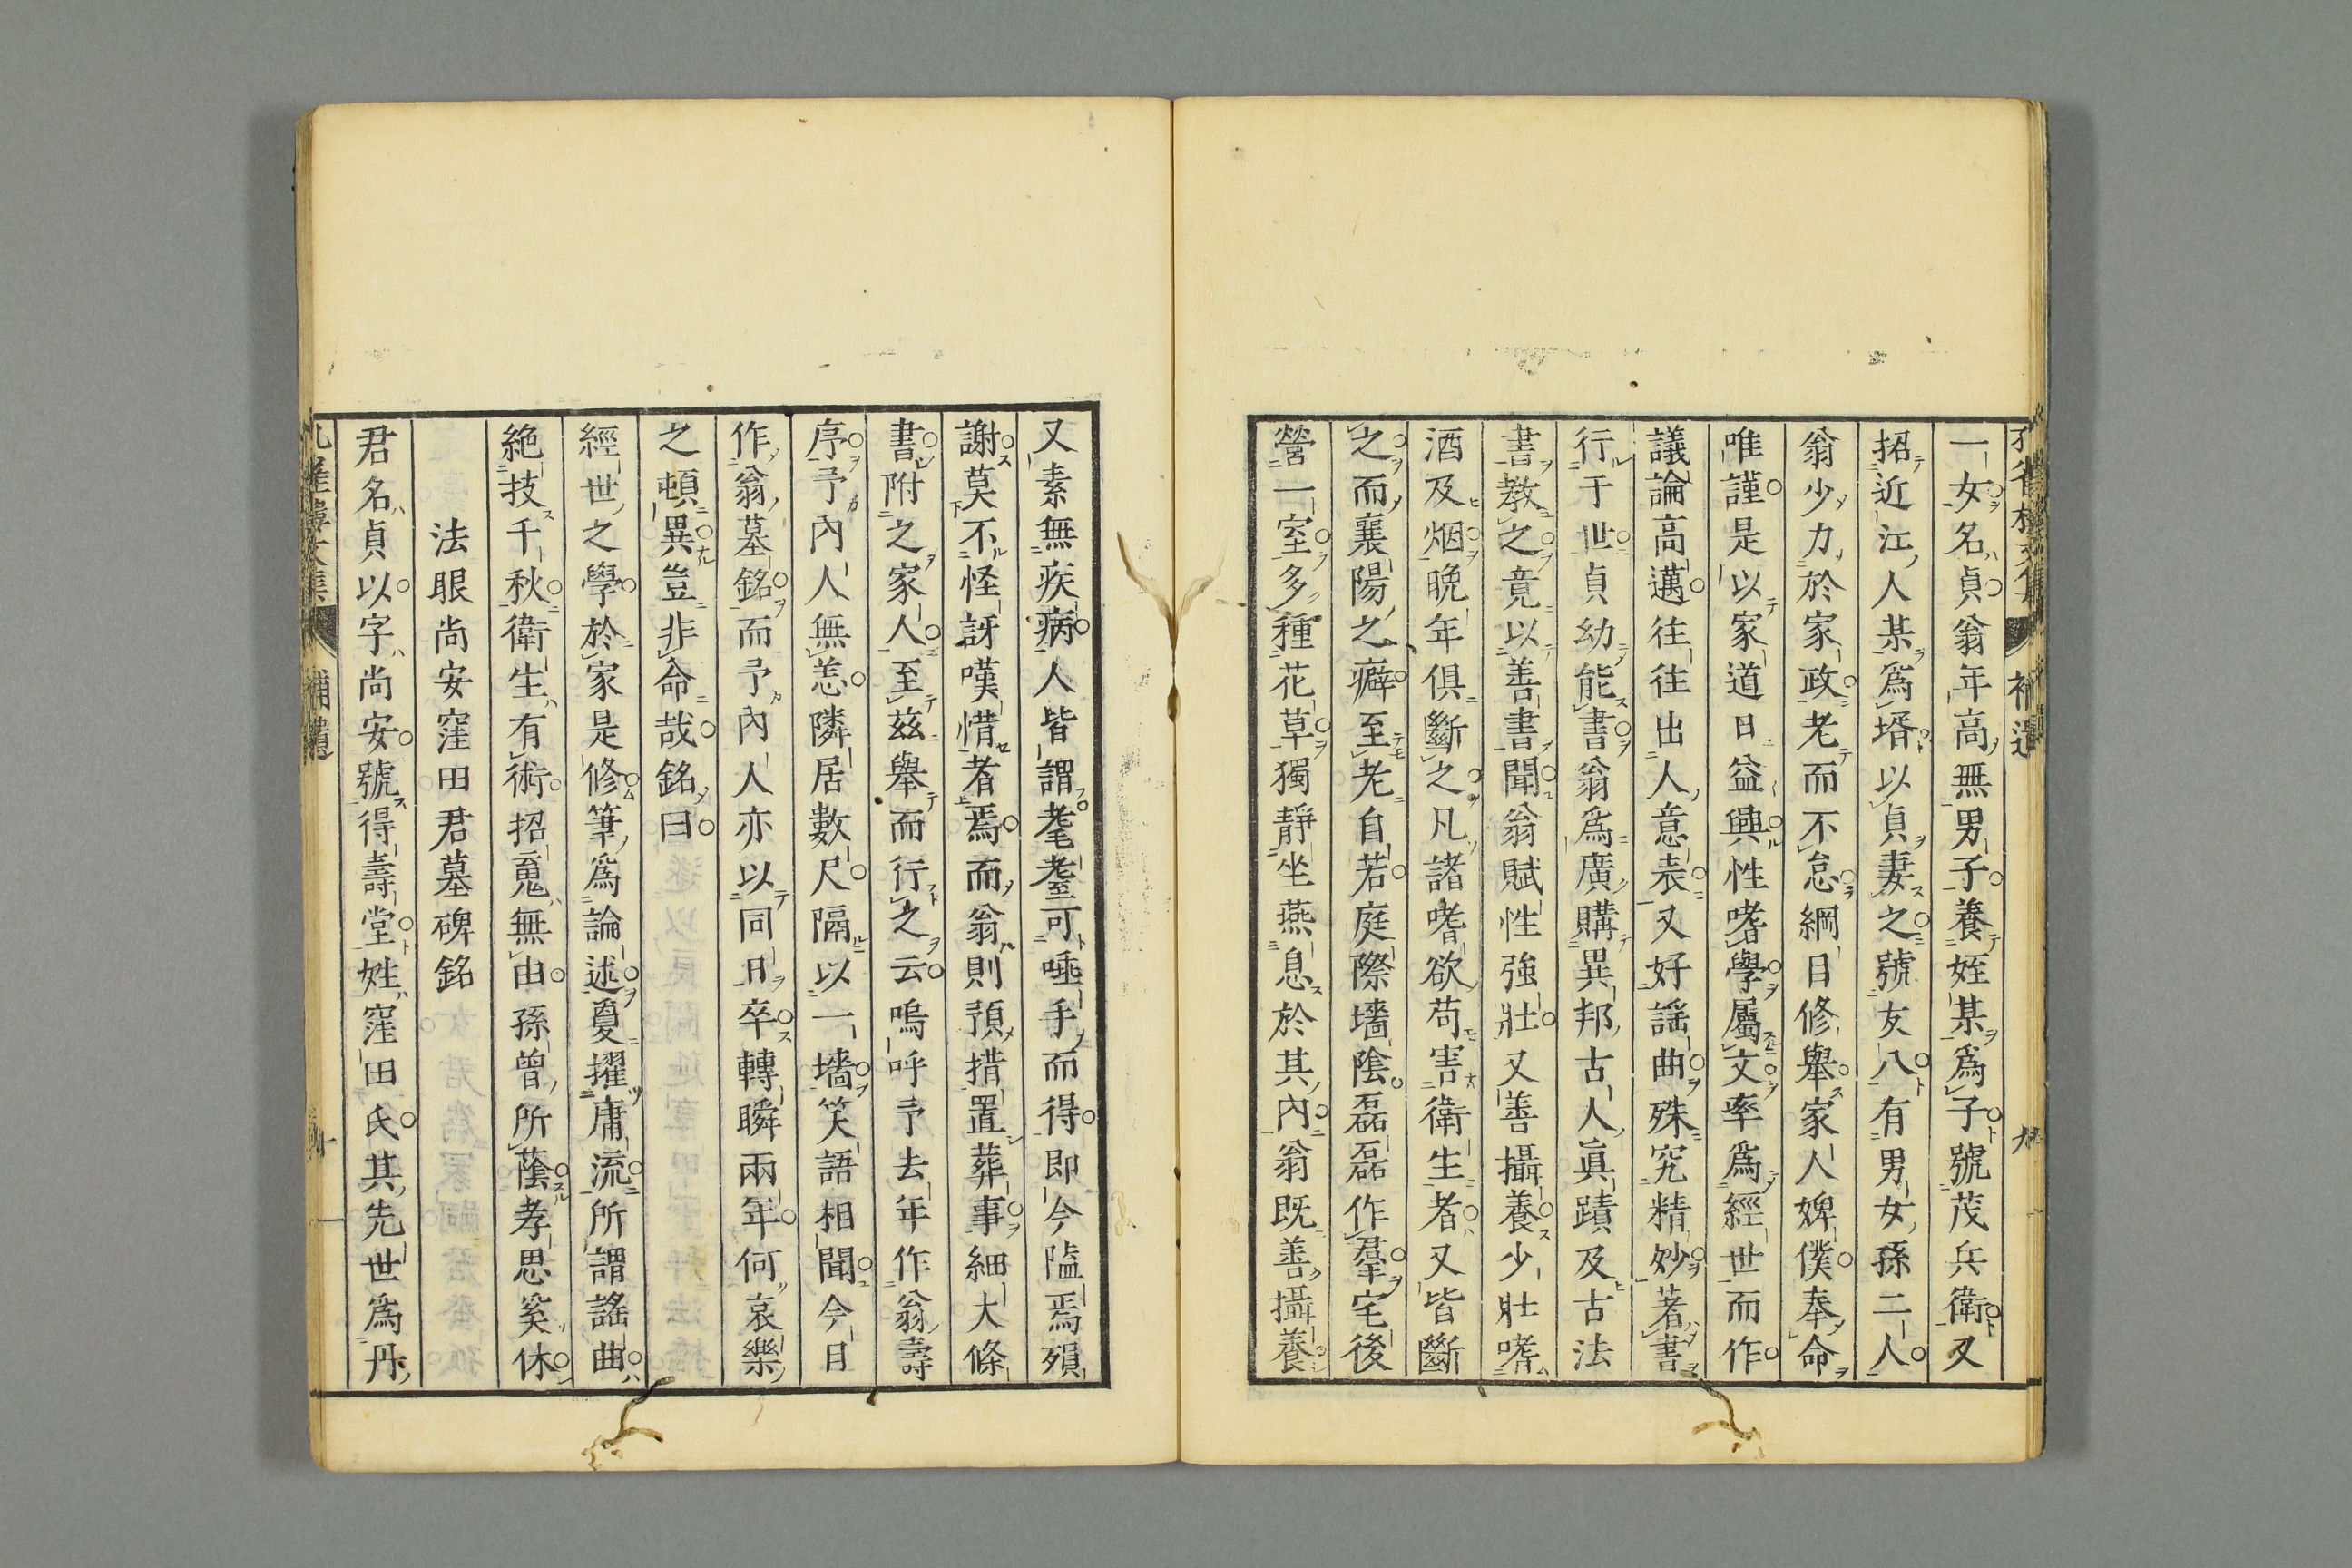 一女名貞翁年高無男子養姪某爲子號茂兵衛又
招近江人某爲壻以貞妻之號友八有男女孫二人
翁少力於家政老而不怠綱目修舉家人婢僕奉命
唯謹是以家道日益興性嗜學屬文率爲經世而作
議論高邁往往出人意表又好謡曲殊究精妙著書
行于世貞幼能書翁爲廣購異邦古人眞蹟及古法
書教之竟以善書聞翁賦性強壯又善攝養少壯嗜
酒及烟晩年俱斷之凡諸嗜欲苟害衛生者又皆斷
之而襄陽之癖至老自若庭際墻陰磊磊作羣宅後
營一室多種花草獨靜坐燕息於其內翁既善攝養
又素無疾病人皆謂耄耋可唾手而得即今隘焉殞
謝莫不怪訝嘆惜者焉而翁則預措置葬事細大條
書附之家人至茲舉而行之云嗚呼予去年作翁壽
序予內人無恙隣居數尺隔以一墻笑語相聞今日
作翁墓銘而予內人亦以同日卒轉瞬兩年何哀樂
之頓異豈非命哉銘曰
經世之學於家是修筆爲論述夐擢庸流所謂謠曲
絶技千秋衛生有術招䰟無由孫曾所蔭孝思奚休
法眼尚安窪田君墓碑銘
君名貞以字尚安號得壽堂姓窪田氏其先世爲丹
補遺
九